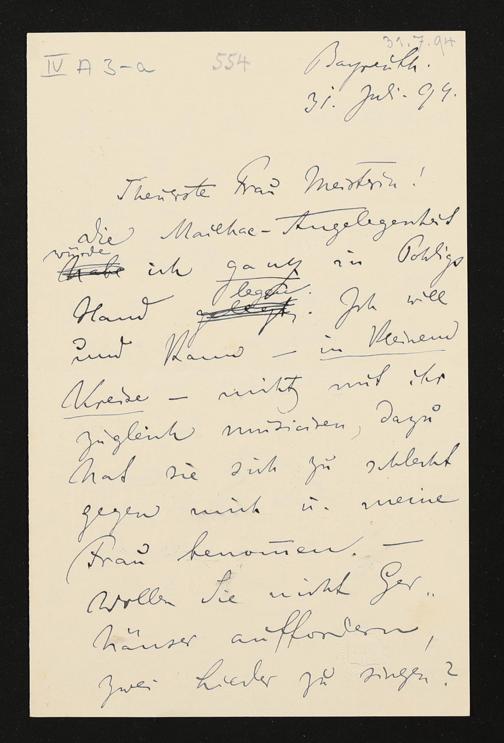 31.7.94
IV A 3-a
554
Bayreuth.
31. Juli. 94.
Theuerste Frau Meisterin!
Die Mailhac-Angelegenheit
würde
habe ich ganz in Pohligs
legen.
Hand gelegt. Ich will
und kann – in kleinem
Kreise – nicht mit ihr
zugleich musiciren, dazu
hat sie sich zu schlecht
gegen mich u. meine
Frau benommen. –
Wollen Sie nicht Ger-
häuser auffordern,
zwei Lieder zu singen?